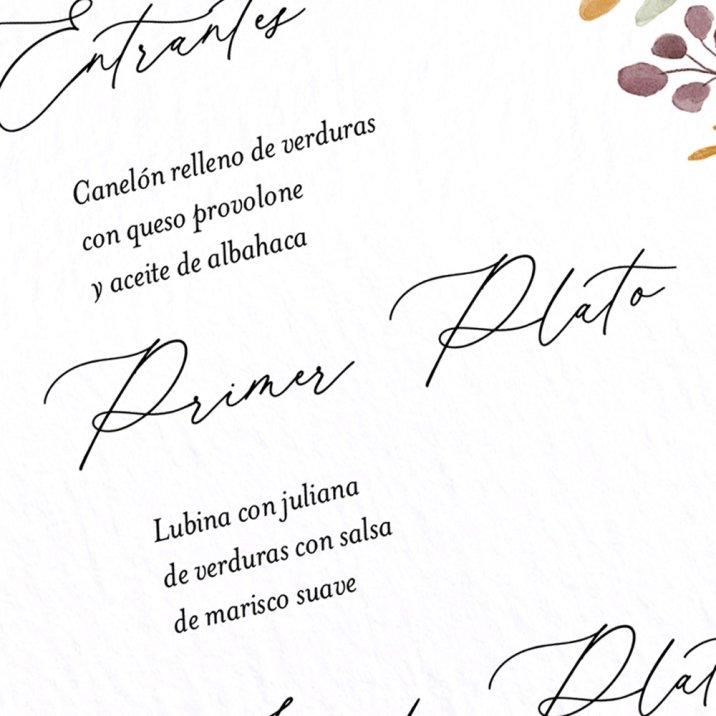 Entrantes
Canelón relleno de verduras
con queso provolone
y aceite de albahaca
Primer Plato
Lubina con juliana
de verduras con salsa
de marisco suave